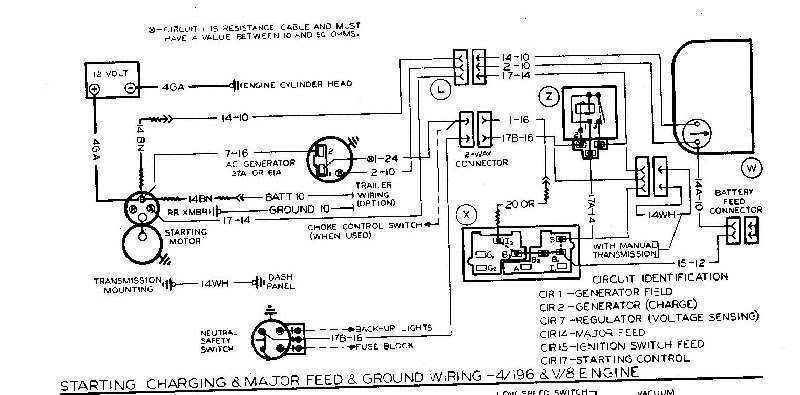 ⊗-CIRCUIT 1 IS RESISTANCE CABLE AND MUST
HAVE A VALUE BETWEEN 10 AND 60 OHMS.
12 VOLT
4GA
ENGINE CYLINDER HEAD
14-10
2-10
17-14
L
Z
W
X
4GA
14BN
14-10
7-16
AC GENERATOR
37A OR 61A
2
1
⊗1-24
2-10
1-16
17B-16
2-WAY
CONNECTOR
14BN
BATT 10
TRAILER
WIRING
(OPTION)
GROUND 10
17-14
STARTING
MOTOR
CHOKE CONTROL SWITCH
(WHEN USED)
20 OR
17A-14
14WH
14A-10
BATTERY
FEED
CONNECTOR
WITH MANUAL
TRANSMISSION
15-12
TRANSMISSION
MOUNTING
14WH
DASH
PANEL
CIRCUIT IDENTIFICATION
CIR 1 - GENERATOR FIELD
CIR 2 - GENERATOR (CHARGE)
CIR 7 - REGULATOR (VOLTAGE SENSING)
CIR 14 - MAJOR FEED
CIR 15 - IGNITION SWITCH FEED
CIR 17 - STARTING CONTROL
NEUTRAL
SAFETY
SWITCH
BACK-UP LIGHTS
17B-16
FUSE BLOCK
STARTING CHARGING & MAJOR FEED & GROUND WIRING -4/196 & V/8 ENGINE
LOW SPEED SWITCH
VACUUM